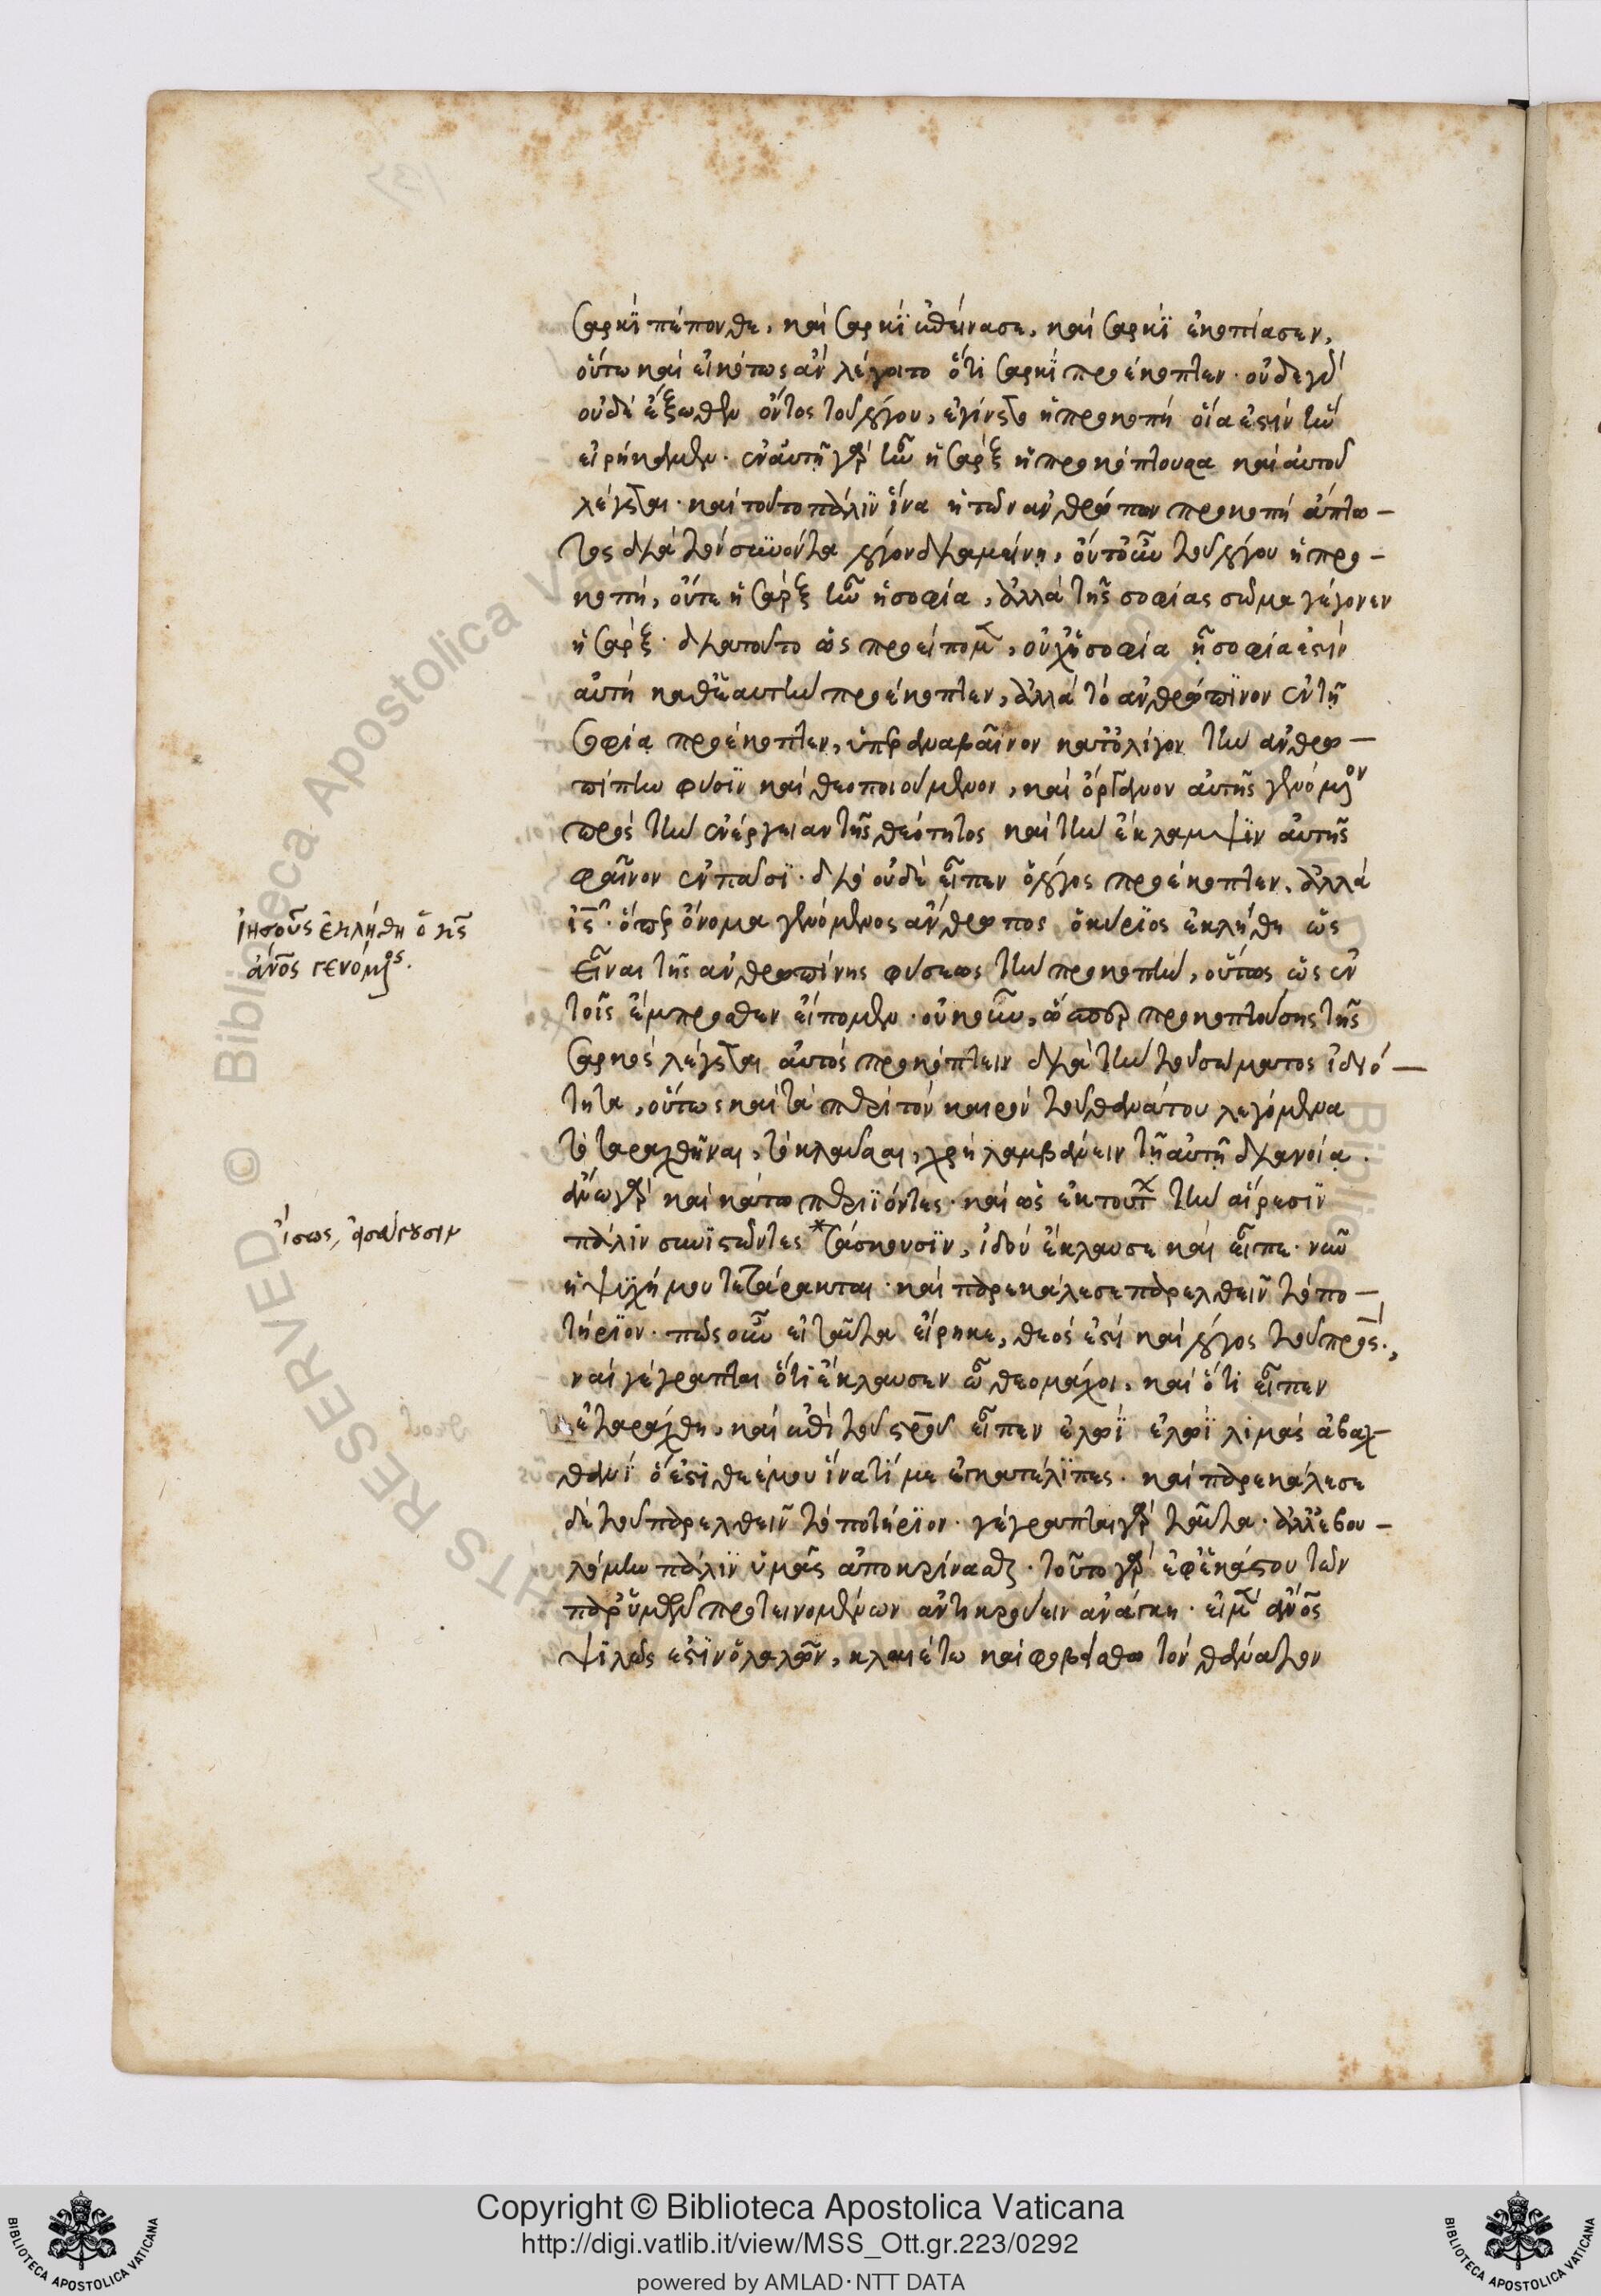 σαρκὶ πέπονθε, καὶ σαρκὶ ἐπείνασε, καὶ σαρκὶ ἐκοπίασεν,
οὕτω καὶ εἰκότως ἂν λέγοιτο ὅτι σαρκὶ προέκοπτεν· οὐδὲ γὰρ
οὐδὲ ἔξωθεν ὄντος τοῦ λόγου, ἐγίνετο ἡ προκοπὴ οἵα ἐστὶν ὡς
εἰρήκαμεν· ἐν αὐτῇ γὰρ ἦν ἡ σὰρξ ἡ προκόπτουσα καὶ αὐτοῦ
λέγεται· καὶ τοῦτο πάλιν ἵνα ἡ τῶν ἀνθρώπων προκοπὴ ἄπτω-
τος διὰ τὸν συνόντα λόγον διαμείνῃ, οὔτ' οὖν τοῦ λόγου ἡ προ-
κοπή, οὔτε ἡ σὰρξ ἦν ἡ σοφία, ἀλλὰ τῆς σοφίας σῶμα γέγονεν
ἡ σάρξ· διὰ τοῦτο ὡς προείπομεν, οὐχ ἡ σοφία ᾗ σοφία ἐστὶν
αὐτὴ καθ' ἑαυτὴν προέκοπτεν, ἀλλὰ τὸ ἀνθρώπινον ἐν τῇ
σοφίᾳ προέκοπτεν, ὑπεραναβαῖνον κατ' ὀλίγον τὴν ἀνθρω-
πίνην φύσιν καὶ θεοποιούμενον, καὶ ὄργανον αὐτῆς γενόμενον
πρὸς τὴν ἐνέργειαν τῆς θεότητος καὶ τὴν ἔκλαμψιν αὐτῆς
φαῖνον ἐν πᾶσι· διὸ οὐδὲ εἶπεν ὁ λόγος προέκοπτεν, ἀλλὰ
ις̄· ὅπερ ὄνομα γενόμενος ἄνθρωπος ὁ κύριος ἐκλήθη ὡς
εἶναι τῆς ἀνθρωπίνης φύσεως τὴν προκοπήν, οὕτως ὡς ἐν
τοῖς ἔμπροσθεν εἴπομεν· οὐκοῦν, ὥσπερ προκοπτούσης τῆς
σαρκὸς λέγεται αὐτὸς προκόπτειν διὰ τὴν τοῦ σώματος ἰδιό-
τητα, οὕτως καὶ τὰ περὶ τὸν καιρὸν τοῦ θανάτου λεγόμενα
τὸ ταραχθῆναι, τὸ κλαῦσαι, χρὴ λαμβάνειν τῇ αὐτῇ διανοίᾳ·
ἄνω γὰρ καὶ κάτω περιϊόντες· καὶ ὡς ἐκ τούτων τὴν αἵρεσιν
πάλιν συνιστῶντες * φάσκουσιν, ἰδοὺ ἔκλαυσε καὶ εἶπε· νῦν
ἡ ψυχή μου τετάρακται· καὶ παρεκάλεσε παρελθεῖν τὸ πο-
τήριον· πῶς οὖν εἰ ταῦτα εἴρηκε, θεός ἐστι καὶ λόγος τοῦ πρς̄·,
ναὶ γέγραπται ὅτι ἔκλαυσεν ὦ θεομάχοι, καὶ ὅτι εἶπεν
ἐταράχθη, καὶ ἐπὶ τοῦ στ̄ροῦ εἶπεν ἐλωῒ ἐλωῒ λιμὰς ἀβαχ-
θανῒ ὅ ἐστι θεέ μου ἵνα τί με ἐγκατέλιπες· καὶ παρεκάλεσε
δὲ τοῦ παρελθεῖν τὸ ποτήριον· γέγραπται γὰρ ταῦτα· ἀλλ' ἐβου-
λόμην πάλιν ὑμᾶς ἀποκρίνασθαι· τοῦτο γὰρ ἐφ' ἑκάστου τῶν
παρ' ὑμῶν προτεινομένων ἀντικρούειν ἀνάγκη· εἰ μὲν ἄνος̄
ψιλός ἐστιν ὁ λαλῶν, κλαιέτω καὶ φοβείσθω τὸν θάνατον
ἰησοῦς ἐκλήθη ὁ κς̄
ἄνος̄ γενόμος.
ἴσως,
Copyright © Biblioteca Apostolica Vaticana
http://digi.vatlib.it/view/MSS_Ott.gr.223/0292
powered by AMLAD·NTT DATA